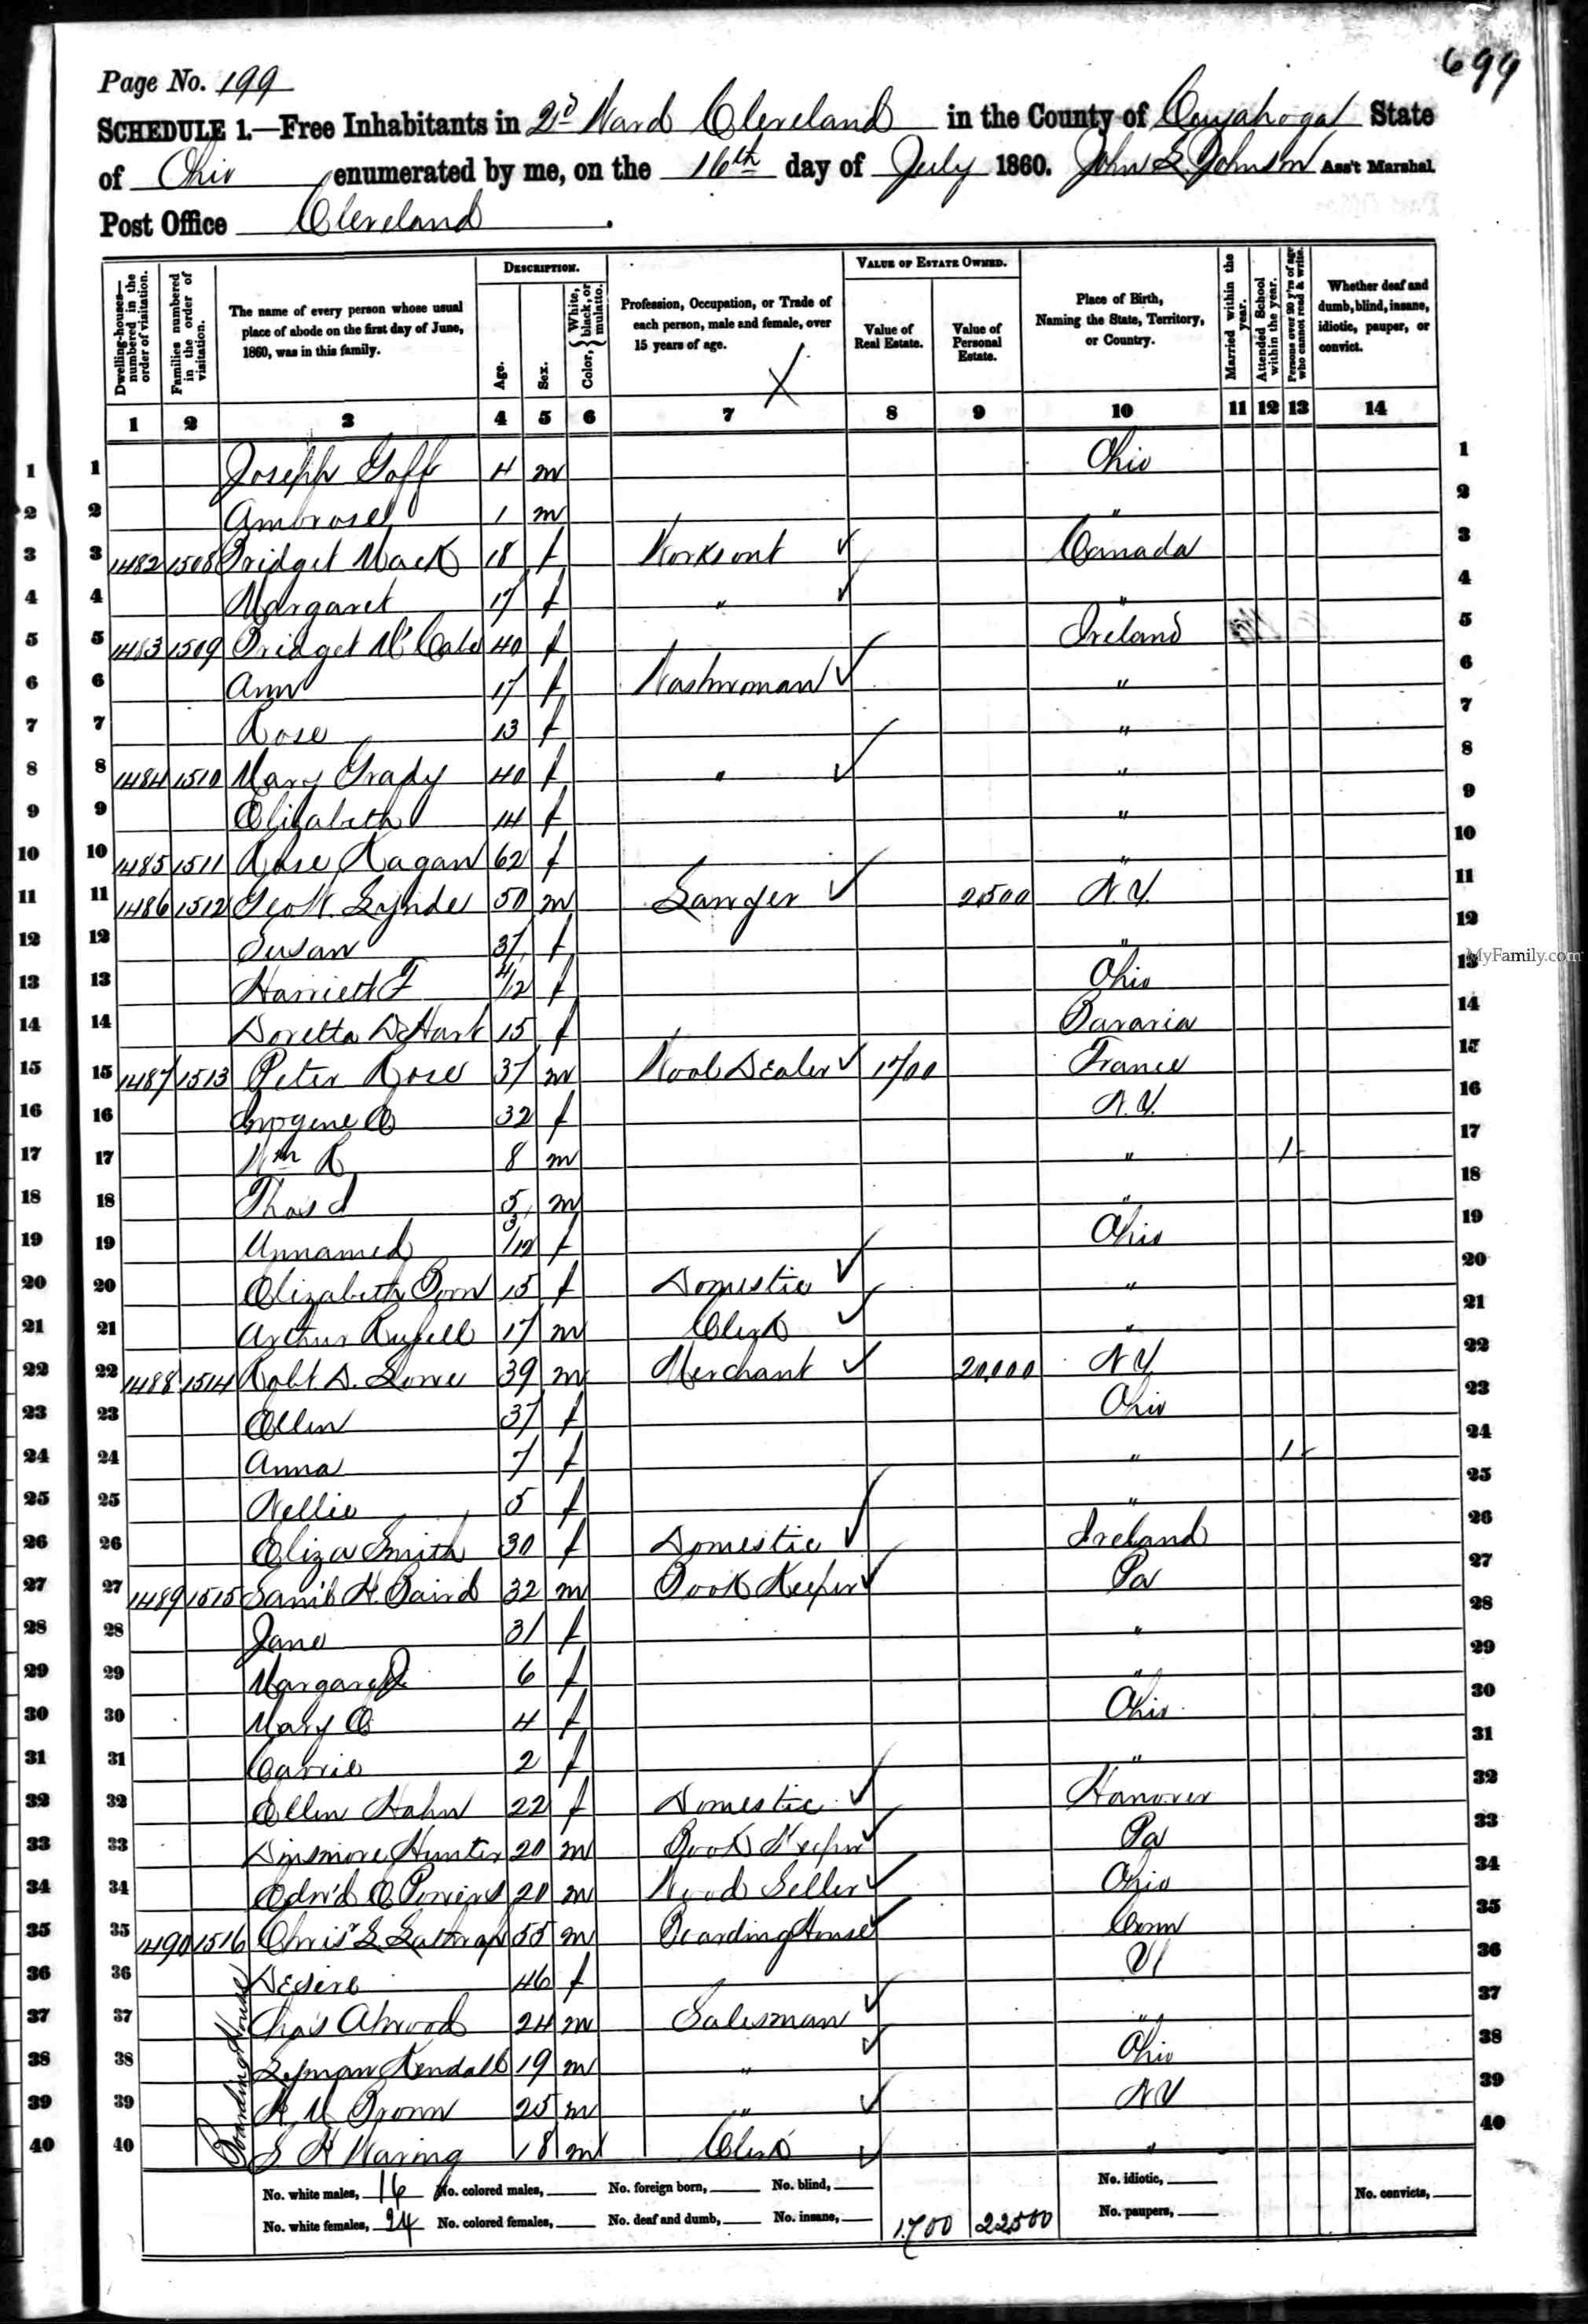 699
Page No. 199
SCHEDULE 1.—Free Inhabitants in 2d Ward Cleveland in the County of Cuyahoga State
of Ohio enumerated by me, on the 16th day of July 1860. John S. Johnson Ass't Marshal.
Post Office Cleveland.
Dwelling-houses—numbered in the order of visitation. Families numbered in the order of visitation. The name of every person whose usual place of abode on the first day of June, 1860, was in this family. DESCRIPTION. Age. Sex. Color, White, black, or mulatto. Profession, Occupation, or Trade of each person, male and female, over 15 years of age. VALUE OF ESTATE OWNED. Value of Real Estate. Value of Personal Estate. Place of Birth, Naming the State, Territory, or Country. Married within the year. Attended School within the year. Persons over 20 y'rs of age who cannot read & write. Whether deaf and dumb, blind, insane, idiotic, pauper, or convict.
1 2 3 4 5 6 7 8 9 10 11 12 13 14
1 1 Joseph Goff 4 m Ohio 1
2 2 Ambrose 1 m " 2
3 3 1482 1508 Bridget Mack 18 f Works out Canada 3
4 4 Margaret 17 f " " 4
5 5 1483 1509 Bridget McCabe 40 f Ireland 5
6 6 Ann 17 f Washwoman " 6
7 7 Rose 13 f " 7
8 8 1484 1510 Mary Grady 40 f " " 8
9 9 Elizabeth 14 f " 9
10 10 1485 1511 Rose Kagan 62 f " 10
11 11 1486 1512 Geo W. Lynde 50 m Lawyer 2500 N.Y. 11
12 12 Susan 37 f " 12
13 13 Harriett F 4/12 f Ohio 13
14 14 Doretta DeHart 15 f Bavaria 14
15 15 1487 1513 Peter Rose 37 m Wool Dealer 1700 France 15
16 16 Imogene E 32 f N.Y. 16
17 17 Wm R 8 m " 1 17
18 18 Thos I 5 m " 18
19 19 Unnamed 3/12 f Ohio 19
20 20 Elizabeth Born 15 f Domestic " 20
21 21 Arthur Russell 17 m Clerk " 21
22 22 1488 1514 Robt. D. Lowe 39 m Merchant 20,000 N.Y. 22
23 23 Ellen 37 f Ohio 23
24 24 Anna 7 f " 1 24
25 25 Nellie 5 f " 25
26 26 Eliza Smith 30 f Domestic Ireland 26
27 27 1489 1515 Sam'l H. Baird 32 m Book Keeper Pa 27
28 28 Jane 31 f " 28
29 29 Margaret 6 f " 29
30 30 Mary E 4 f Ohio 30
31 31 Carrie 2 f " 31
32 32 Ellen Hahn 22 f Domestic Hanover 32
33 33 Dinsmore Hunter 20 m Book Keeper Pa 33
34 34 Edw'd E Powers 20 m Wood Seller Ohio 34
35 35 1490 1516 Chris L Lathrop 55 m Boarding House Conn 35
36 36 Desire 46 f Vt 36
37 37 Chas Atwood 24 m Salesman " 37
38 38 Lyman Kendall 19 m " Ohio 38
39 39 H M Brown 25 m " N.Y. 39
40 40 S H Waring 18 m Clerk " 40
Boarding House
No. white males, 16 No. colored males, No. foreign born, No. blind, No. idiotic, No. convicts,
No. white females, 24 No. colored females, No. deaf and dumb, No. insane, 1,700 22,500 No. paupers,
MyFamily.com